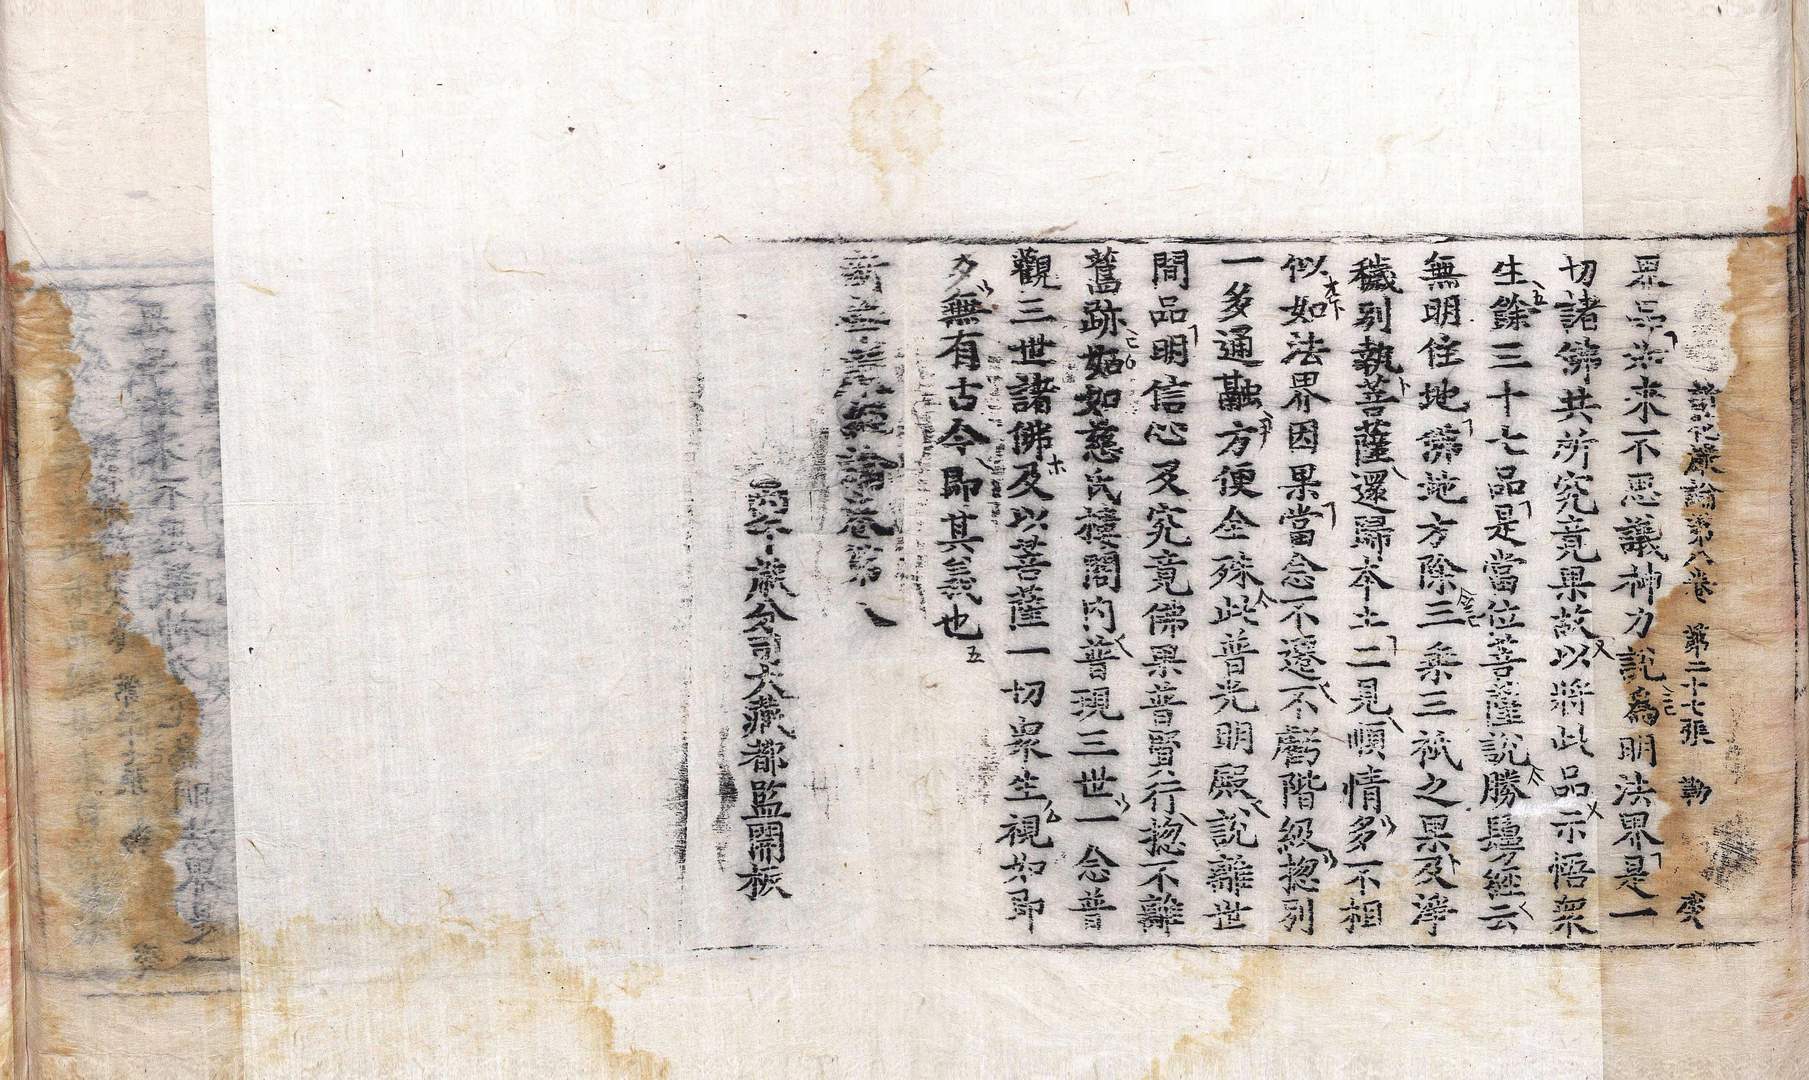 華嚴論第八卷 第二十七張 勸
界品如來不思議神力說為明法界是一
切諸佛共所究竟果故以將此品示悟衆
生餘三十七品是當位菩薩說勝鬘經云
無明住地佛地方除三乘三祇之果及淨
穢別執菩薩還歸本土二見順情多不相
似如法界因果當念不遷不虧階級揔別
一多通融方便全殊此普光明殿說離世
間品明信心及究竟佛果普賢行揔不離
舊跡如慈氏樓閣内普現三世一念普
觀三世諸佛及以菩薩一切衆生視如即
夕無有古今即其義也
新華嚴經論卷第八
丙午歲分司大藏都監開板